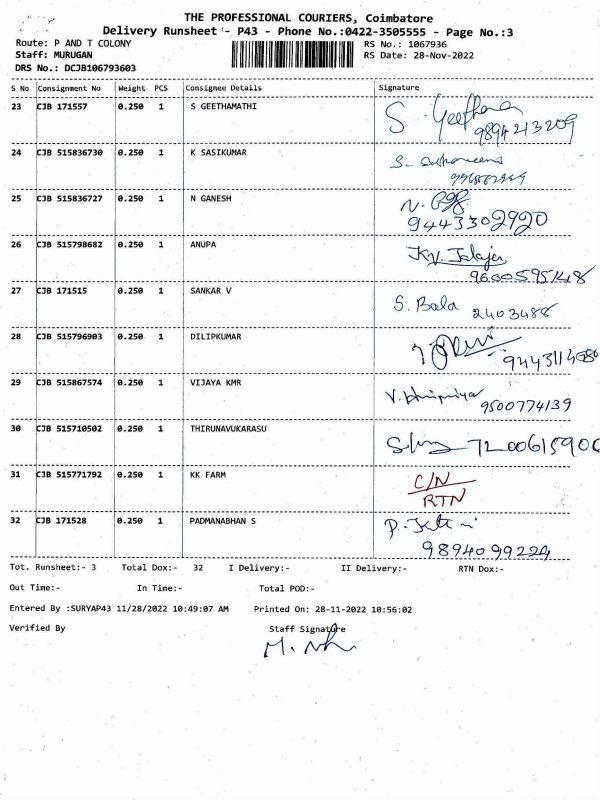 THE PROFESSIONAL COURIERS, Coimbatore
Delivery Runsheet - P43 - Phone No.:0422-3505555 - Page No.:3
Route: P AND T COLONY RS No.: 1067936
Staff: MURUGAN RS Date: 28-Nov-2022
DRS No.: DCJB106793603
S No Consignment No Weight PCS Consignee Details Signature
23 CJB 171557 0.250 1 S GEETHAMATHI S.
9894213209
24 CJB 515836730 0.250 1 K SASIKUMAR
25 CJB 515836727 0.250 1 N GANESH
9443302920
26 CJB 515798682 0.250 1 ANUPA
9600595148
27 CJB 171515 0.250 1 SANKAR V S. Bala 2403488
28 CJB 515796903 0.250 1 DILIPKUMAR
29 CJB 515867574 0.250 1 VIJAYA KMR
9500774139
30 CJB 515710502 0.250 1 THIRUNAVUKARASU 7200615906
31 CJB 515771792 0.250 1 KK FARM C/N
RTN
32 CJB 171528 0.250 1 PADMANABHAN S
9894099224
Tot. Runsheet:- 3 Total Dox:- 32 I Delivery:- II Delivery:- RTN Dox:-
Out Time:- In Time:- Total POD:-
Entered By :SURYAP43 11/28/2022 10:49:07 AM Printed On: 28-11-2022 10:56:02
Verified By Staff Signature